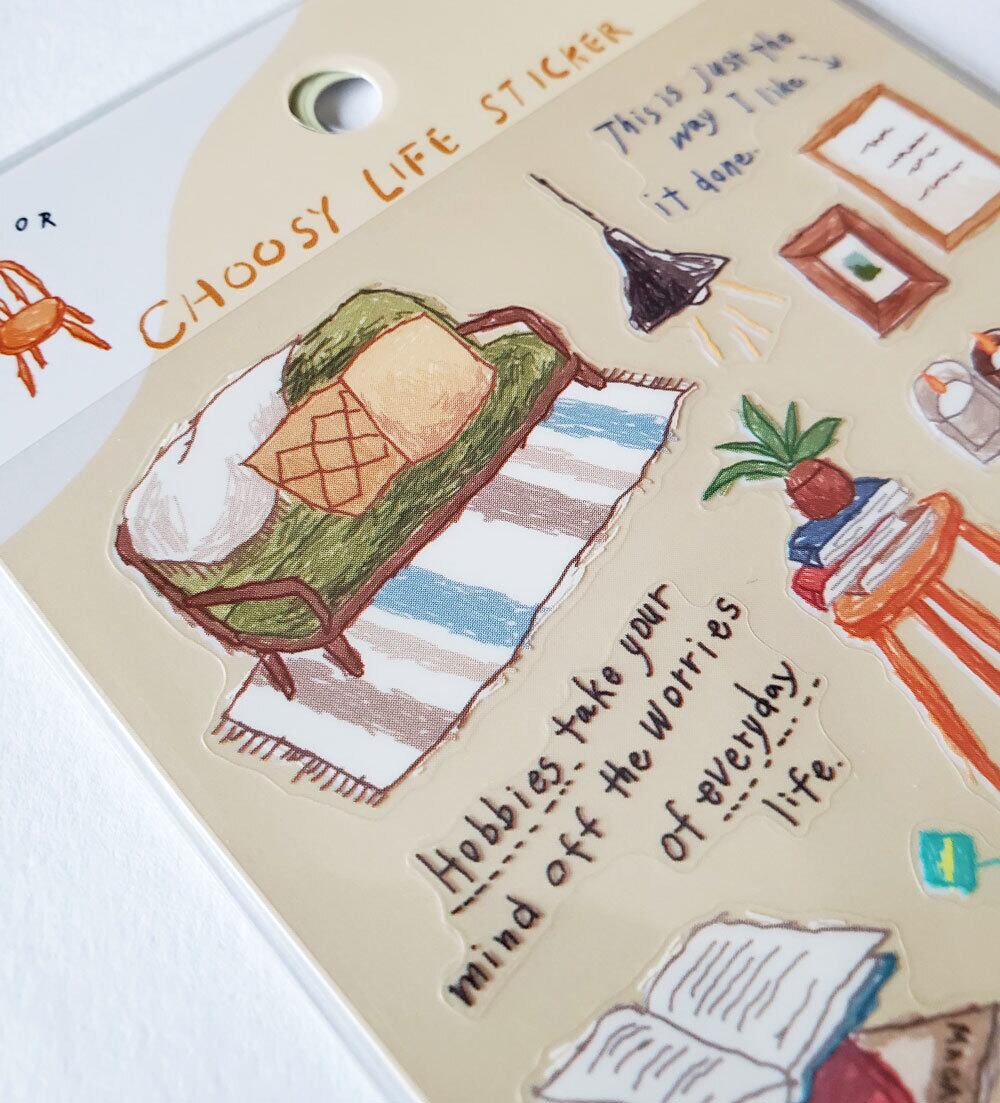 OR
CHOOSY LIFE STICKER
This is just the
way I like
it done.
Hobbies take your
mind off the worries
of everyday
life.